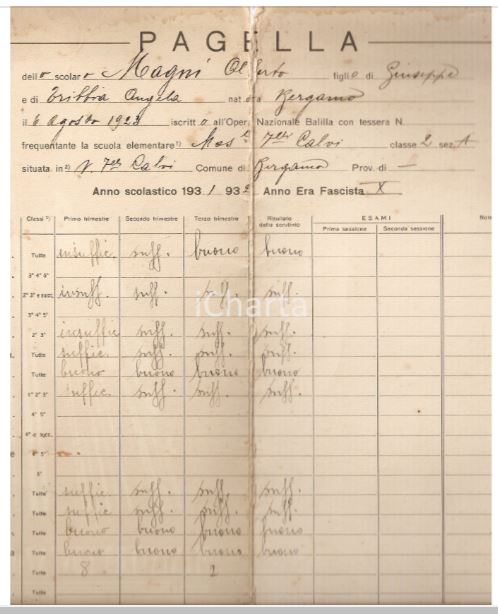 PAGELLA
dello scolaro Magni Alberto figlio di Giuseppe
e di Tribbia Angela nato a Bergamo
il 6 Agosto 1923 iscritto all'Opera Nazionale Balilla con tessera N.
frequentante la scuola elementare 1) Mas. F.lli Calvi classe 2 sez. A
situata in 2) V. F.lli Calvi Comune di Bergamo Prov. di —
Anno scolastico 1931 1932 Anno Era Fascista X
Classi Primo trimestre Secondo trimestre Terzo trimestre Risultato dello scrutinio ESAMI Prima sessione Seconda sessione Note
Tutte insuffic. suff. buono buono
3ª 4ª 5ª
2ª 3ª e succ. insuff. suff. suff. suff.
3ª 4ª 5ª
2ª 3ª insuffic. suff. suff. suff.
Tutte suffic. suff. suff. suff.
Tutte buono buono buono buono
1ª 2ª 3ª suffic. suff. suff. suff.
4ª 5ª
4ª e succ.
4ª 5ª
5ª
Tutte suffic. suff. suff. suff.
Tutte suffic. suff. suff. suff.
Tutte buono buono buono buono
Tutte buono buono buono buono
Tutte 8 2
Tutte
iCharta